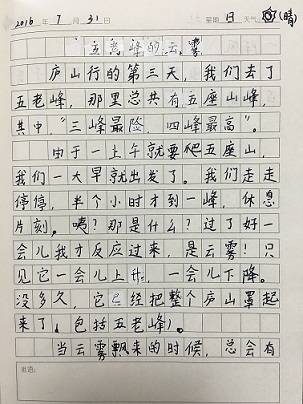 2016年7月31日 星期日 天气(晴)
五老峰的云雾
庐山行的第三天，我们去了
五老峰，那里总共有五座山峰，
其中“三峰最险，四峰最高”。
由于一上午就要爬五座山，
我们一大早就出发了。我们走走
停停，半个小时才到一峰，休息
片刻。咦？那是什么？过了好一
会儿我才反应过来，是云雾！只
见它一会儿上升，一会儿下降。
没多久，它已经把整个庐山罩起
来了（包括五老峰）。
当云雾飘来的时候，总会有
批语：